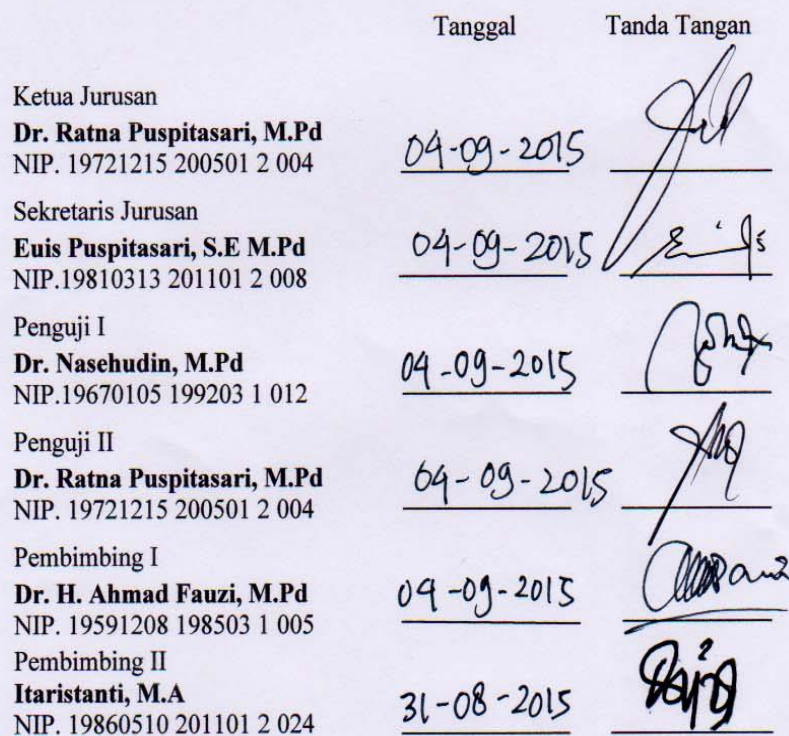 Tanggal Tanda Tangan
Ketua Jurusan
Dr. Ratna Puspitasari, M.Pd
NIP. 19721215 200501 2 004
04-09-2015
Sekretaris Jurusan
Euis Puspitasari, S.E M.Pd
NIP.19810313 201101 2 008
04-09-2015
Penguji I
Dr. Nasehudin, M.Pd
NIP.19670105 199203 1 012
04-09-2015
Penguji II
Dr. Ratna Puspitasari, M.Pd
NIP. 19721215 200501 2 004
04-09-2015
Pembimbing I
Dr. H. Ahmad Fauzi, M.Pd
NIP. 19591208 198503 1 005
04-09-2015
Pembimbing II
Itaristanti, M.A
NIP. 19860510 201101 2 024
31-08-2015